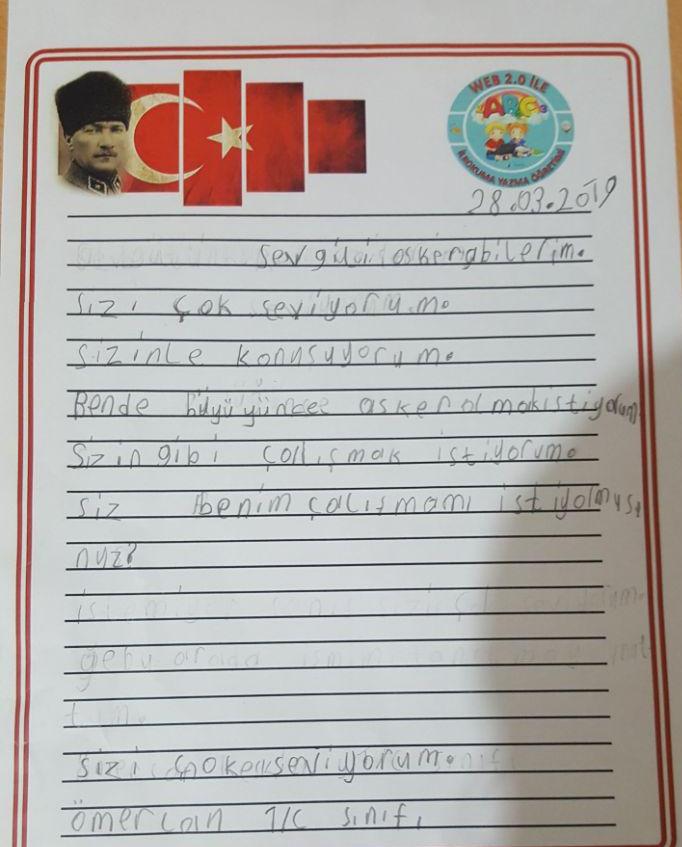 WEB 2.0 İLE
ABC
İLKOKUMA YAZMA ÖĞRETİMİ
28.03.2019
Sevgili askerabilerim.
Sizi çok seviyorum.
Sizinle konusuyorum.
Bende büyüyünce asker olmakistiyorum
Sizin gibi çalışmak istiyorum.
siz benim çalışmamı istiyolmusu
nuz?
gebu arada ismim
tım.
sizi çok seviyorum.
ömercan 1/C sınıfı